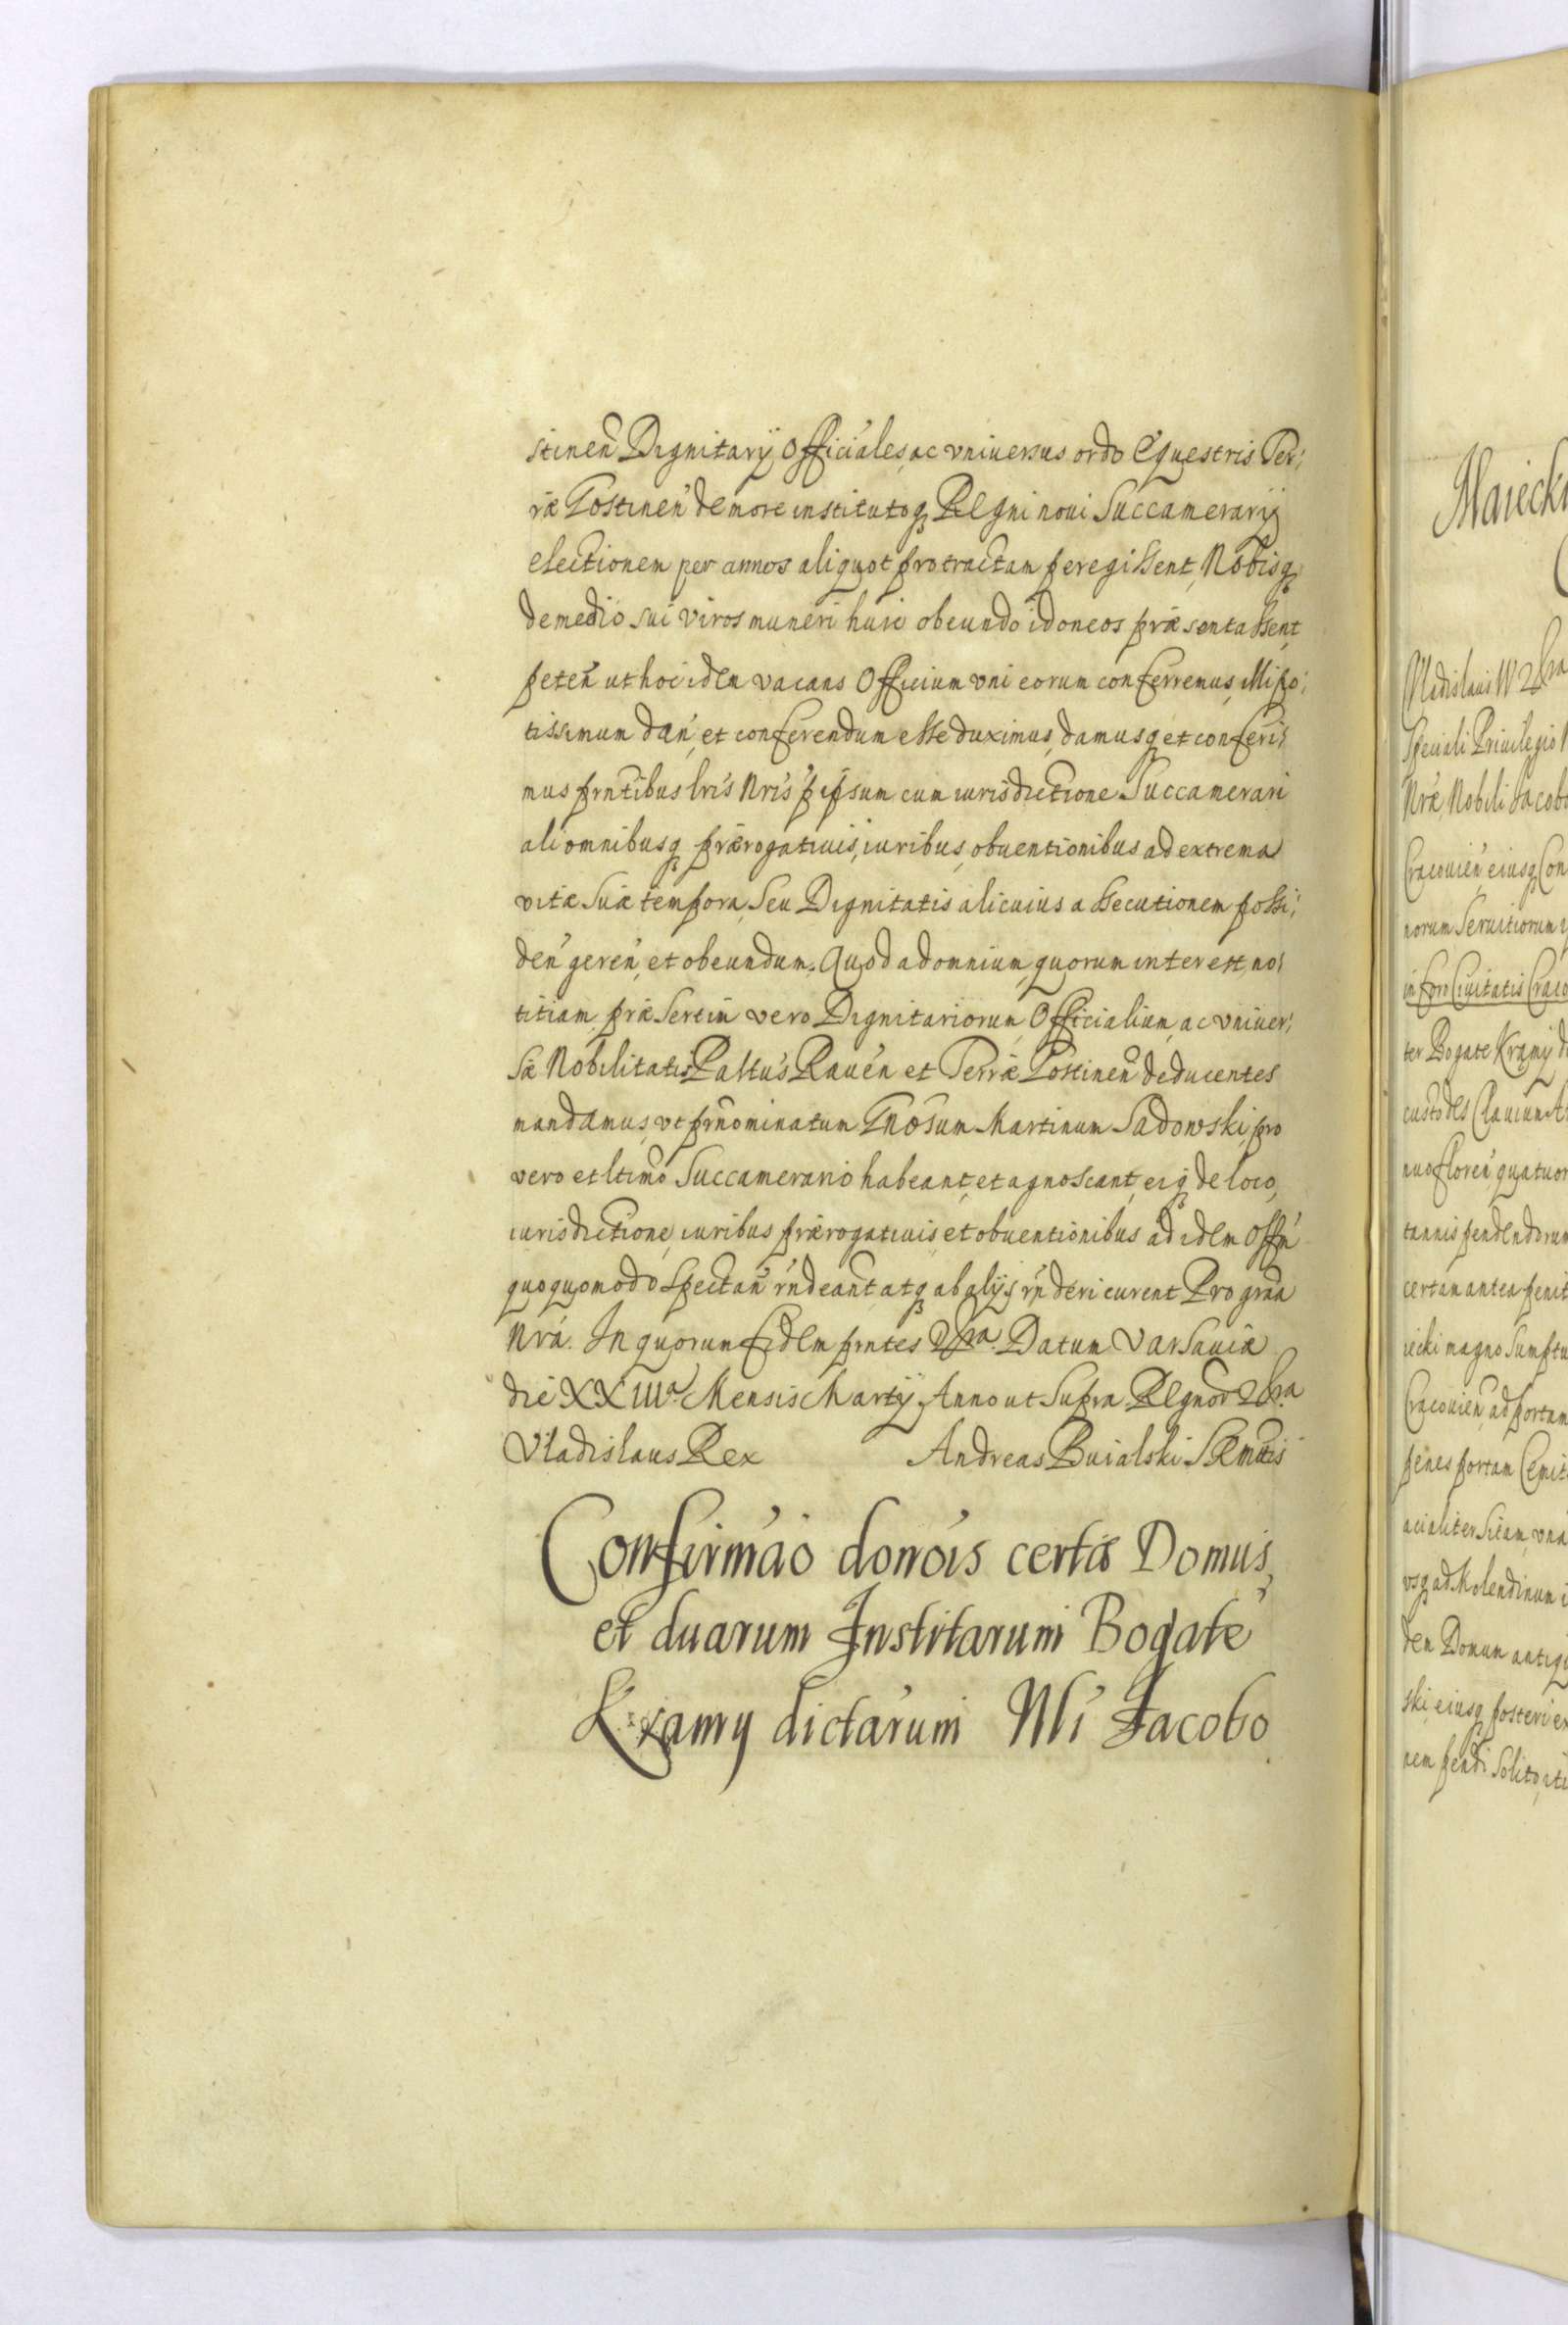 stinen̄ Dignitarij Officiales, ac vniuersus ordo Equestris Ter:
ræ Gostinen̄ de more institutoq̃ Regni noui Succamerarij
electionem per annos aliquot protractam peregissent, Nobisq̃
de medio sui viros muneri huic obeundo idoneos præsentassent,
peten̄ ut hoc idem vacans Officium vni eorum conferremus, illi po:
tissimum dan̄, et conferendum esse duximus, damusq̃ et conferi:
mus prn̄tibus lrīs Nrīs p̱ ipsum cum iurisdictione Succamerari
ali omnibusq̃ prærogatiuis, iuribus, obuentionibus ad extrema
vitæ suæ tempora, seu Dignitatis alicuius assecutionem possi:
den̄ geren̄, et obeundum. Quod ad omnium, quorum interest, no:
titiam, præsertim vero Dignitariorum, Officialium, ac vniuer:
sæ Nobilitatis Paltūs Rauen̄ et Terræ Gostinen̄ deducentes
mandamus, vt prn̄ominatum Gn̄osum Martinum Sadowski, pro
vero et ltimo Succamerario habeant, et agnoscant, eiq̃ de loco,
iurisdictione, iuribus prærogatiuis, et obuentionibus ad idem Offm̄
quoquomodo spectan̄ rn̄deant atq̃ ab alijs rn̄deri curent Pro gra̅a
Nrā. In quorum fidem prn̄tes &ra. Datum Varsauiæ
die XXIIIa. Mensis Martij Anno ut supra Regnor̄ &ra
Vladislaus Rex Andreas Buialski SRMttis
Confirmāo donoīs certæ Domus,
et duarum Institarum Bogate
Kramy dictarum Nli Jacobo
Maiecki
Vladislaus IV &ra
Speciali Priuilegio
Nrā, Nobili Jacobo
Cracouien̄, eiusq̃ Con
norum Seruitiorum
in foro Ciuitatis Craco
ter Bogate Kramy
custodes Clauium
nuo floren̄ quatuor
tannis pendendorum
certam antea penit
iecki magno sumptu
Cracouien̄, ad portam
penes portam
acialiter sitam, vna
vsq̃ ad Molendinum
dem Domum antiq
ski, eiusq̃ posteri ex
nem pendi solito, iti